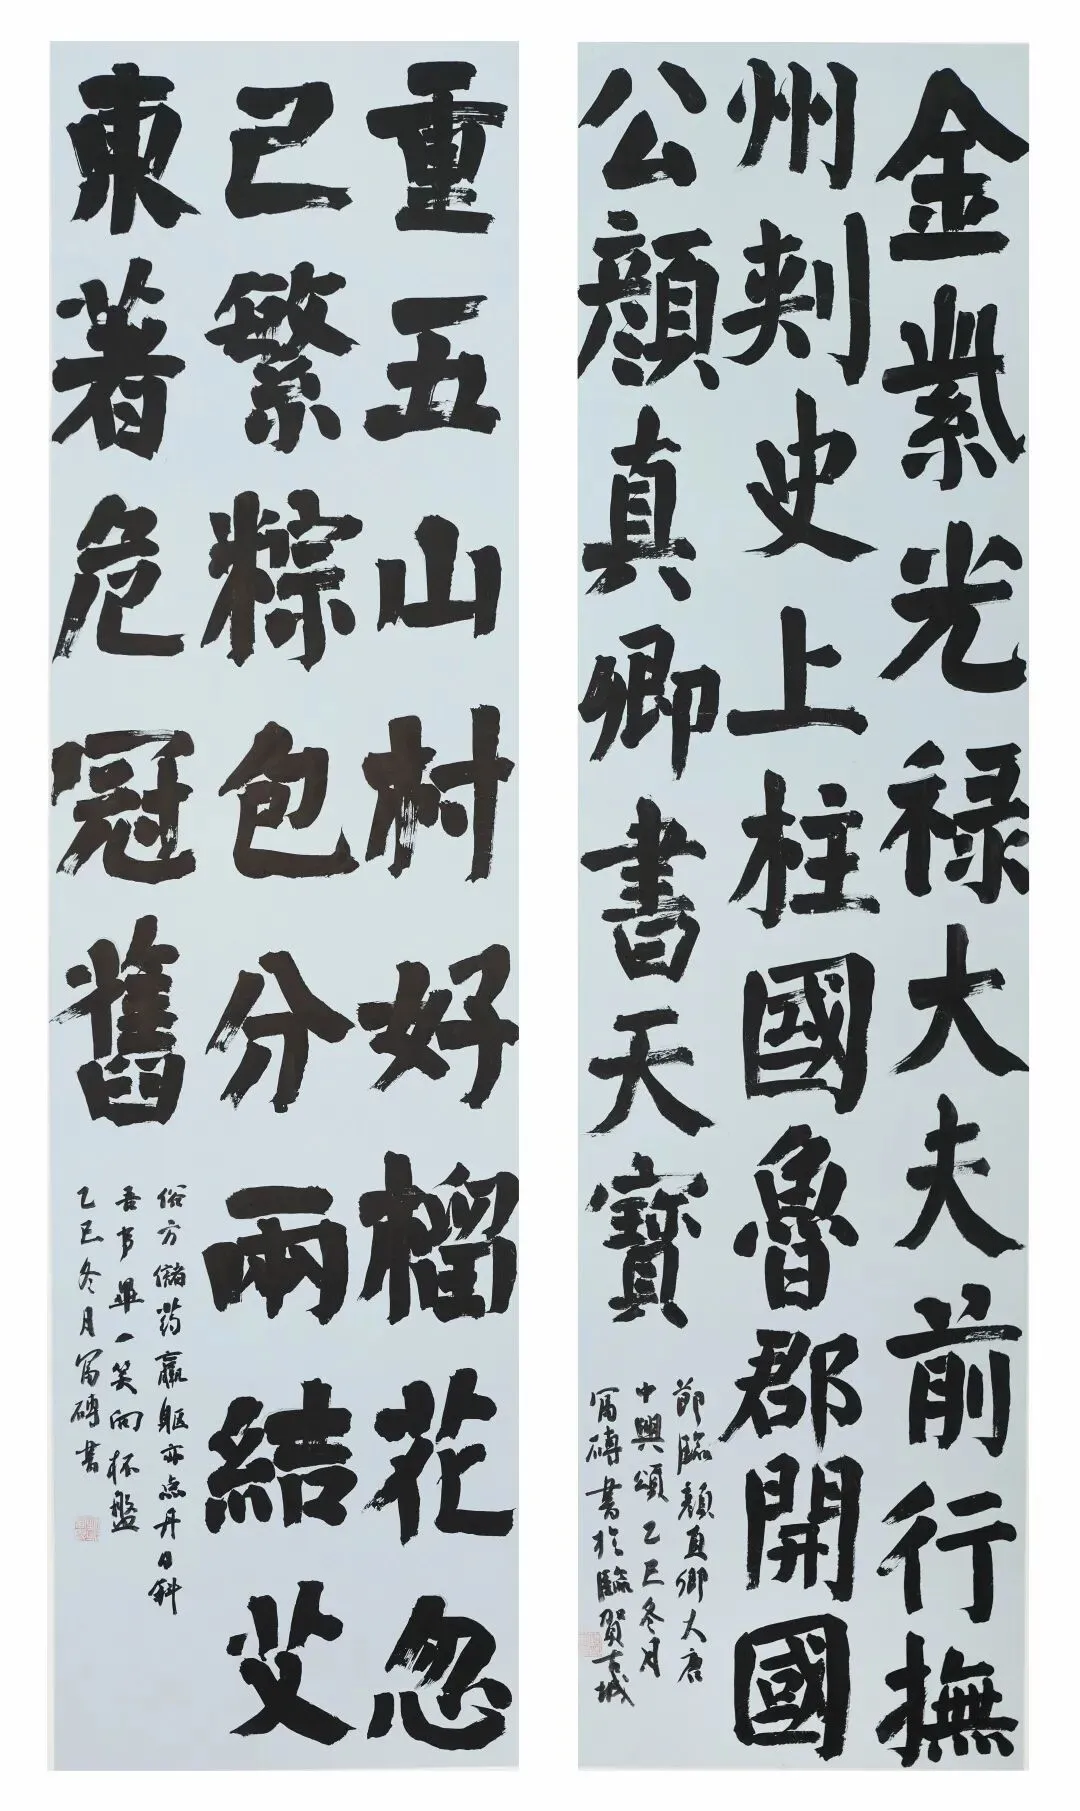 金紫光禄大夫前行撫
州刺史上柱國魯郡開國
公顏真卿書天寶
節臨顏真卿大唐
中興頌乙巳冬月
寫磚書於臨賀古城
重五山村好榴花忽
已繁粽包分兩結艾
束著危冠舊
俗方儲药羸軀亦点丹日斜
吾事畢一笑向杯盤
乙巳冬月寫磚書